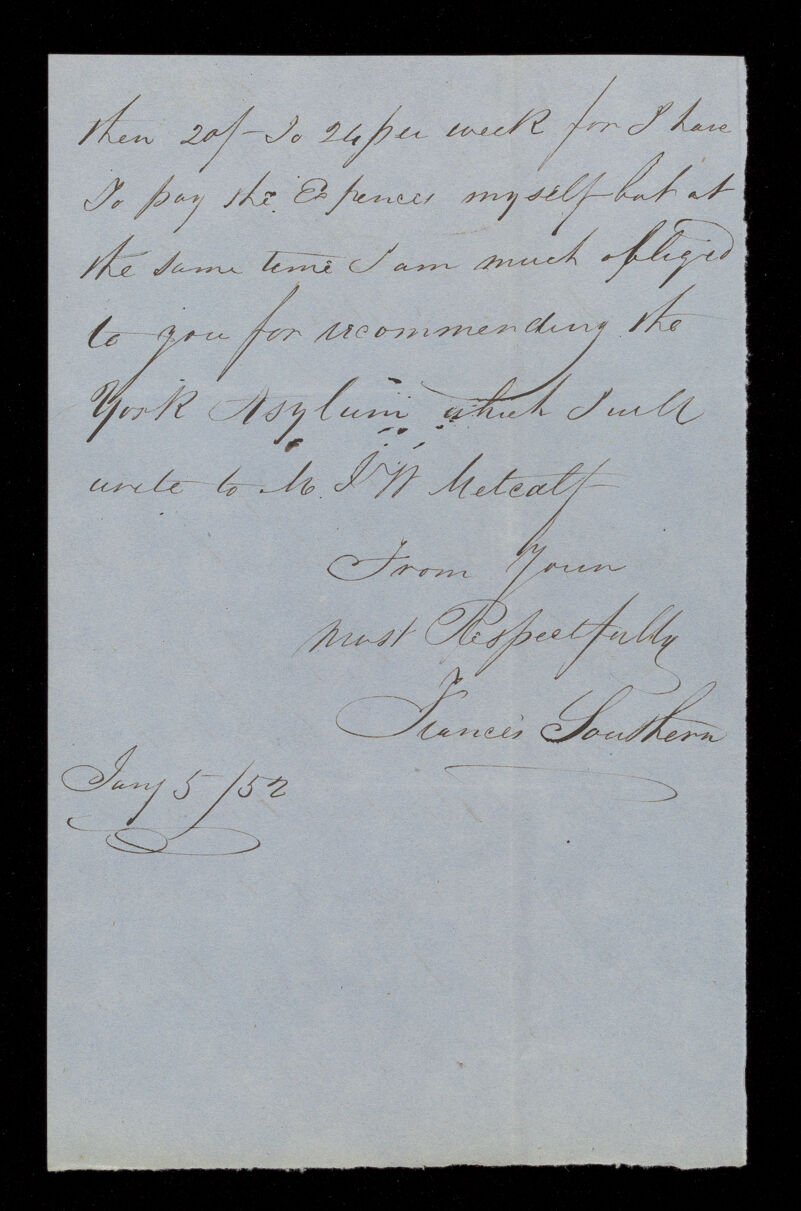 then 20/- To 24 per week for I have
To pay the Expences myself but at
the same time I am much obliged
to you for recommending the
York Asylum which I will
write to Mr. J W Metcalf
From Yours
most Respectfully
Frances Southern
Jany 5/52